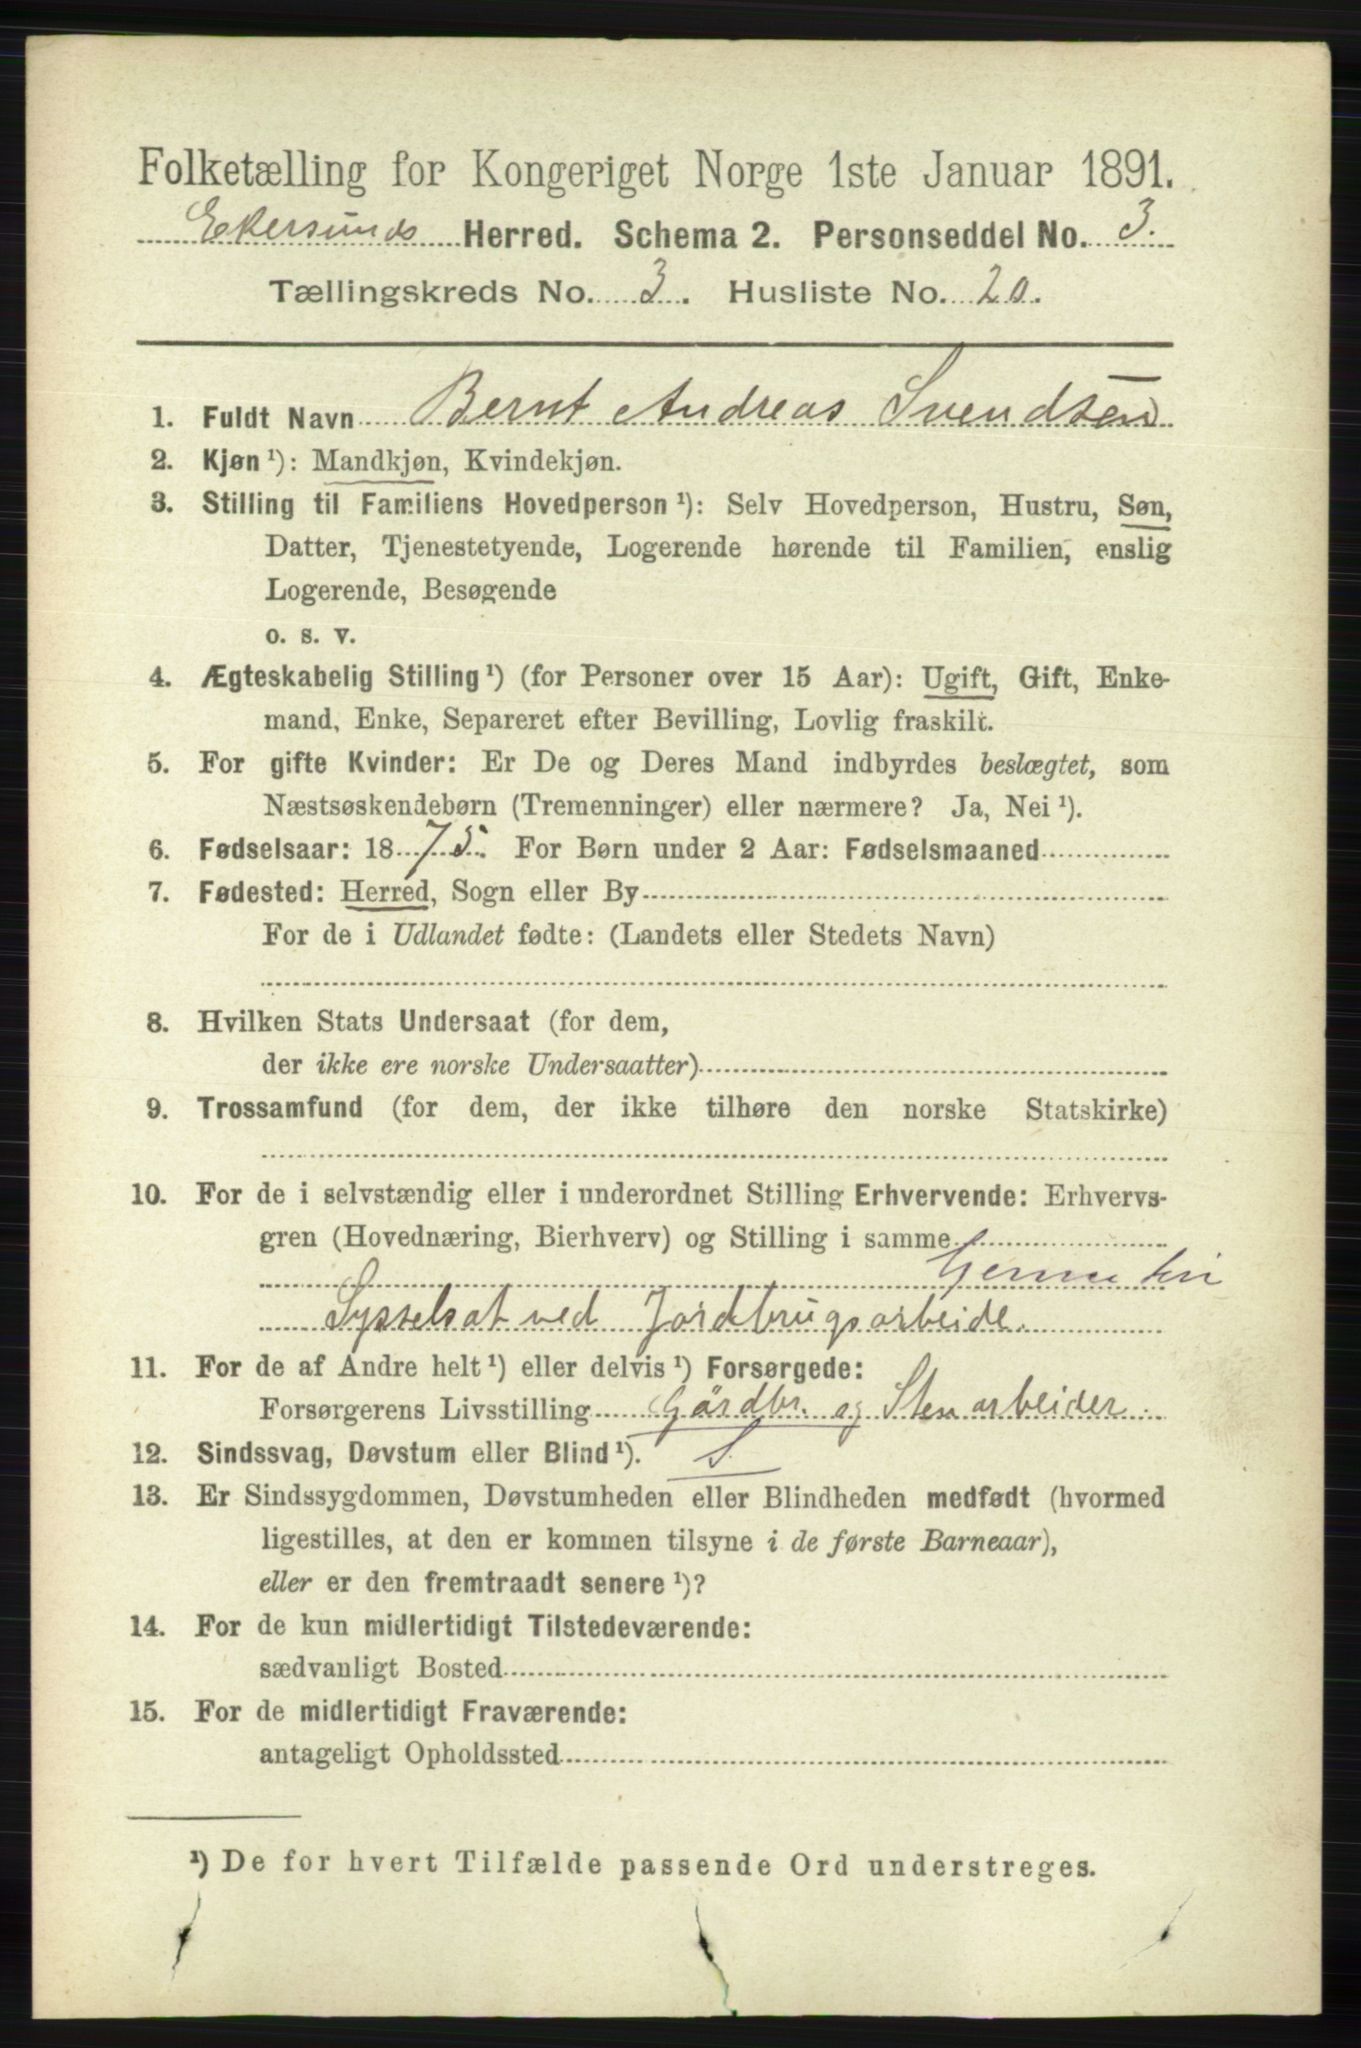 Folketælling for Kongeriget Norge 1ste Januar 1891.
Ekersunds Herred. Schema 2. Personseddel No. 3.
Tællingskreds No. 3. Husliste No. 20.
1. Fuldt Navn Bernt Andreas Svendsen
2. Kjøn ¹): Mandkjøn, Kvindekjøn.
3. Stilling til Familiens Hovedperson ¹): Selv Hovedperson, Hustru, Søn,
Datter, Tjenestetyende, Logerende hørende til Familien, enslig
Logerende, Besøgende
o. s. v.
4. Ægteskabelig Stilling ¹) (for Personer over 15 Aar): Ugift, Gift, Enke-
mand, Enke, Separeret efter Bevilling, Lovlig fraskilt.
5. For gifte Kvinder: Er De og Deres Mand indbyrdes beslægtet, som
Næstsøskendebørn (Tremenninger) eller nærmere? Ja, Nei ¹).
6. Fødselsaar: 1875. For Børn under 2 Aar: Fødselsmaaned
7. Fødested: Herred, Sogn eller By
For de i Udlandet fødte: (Landets eller Stedets Navn)
8. Hvilken Stats Undersaat (for dem,
der ikke ere norske Undersaatter)
9. Trossamfund (for dem, der ikke tilhøre den norske Statskirke)
10. For de i selvstændig eller i underordnet Stilling Erhvervende: Erhvervs-
gren (Hovednæring, Bierhverv) og Stilling i samme
Sysselsat ved Jordbrugsarbeide.
11. For de af Andre helt ¹) eller delvis ¹) Forsørgede:
Forsørgerens Livsstilling Gårdbr. og Stenarbeider.
12. Sindssvag, Døvstum eller Blind ¹). S.
13. Er Sindssygdommen, Døvstumheden eller Blindheden medfødt (hvormed
ligestilles, at den er kommen tilsyne i de første Barneaar),
eller er den fremtraadt senere ¹)?
14. For de kun midlertidigt Tilstedeværende:
sædvanligt Bosted
15. For de midlertidigt Fraværende:
antageligt Opholdssted
¹) De for hvert Tilfælde passende Ord understreges.